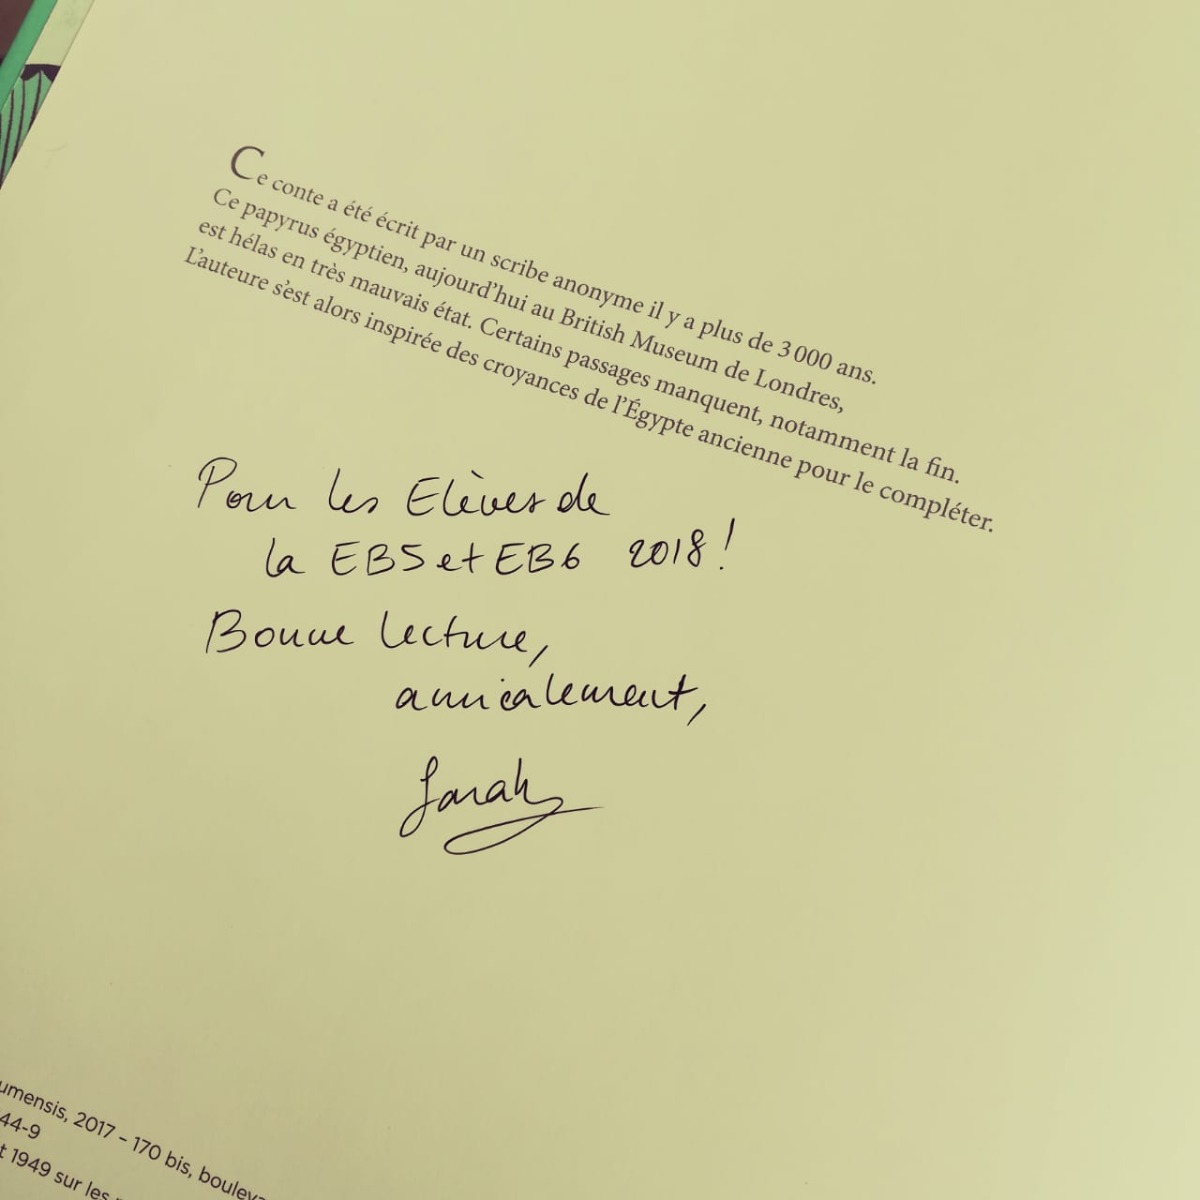 Ce conte a été écrit par un scribe anonyme il y a plus de 3 000 ans.
Ce papyrus égyptien, aujourd'hui au British Museum de Londres,
est hélas en très mauvais état. Certains passages manquent, notamment la fin.
L'auteure s'est alors inspirée des croyances de l'Égypte ancienne pour le compléter.
Pour les Elèves de
la EB5 et EB6 2018 !
Bonne lecture,
amicalement,
Sarah
umensis, 2017 – 170 bis, boulev
44-9
t 1949 sur les